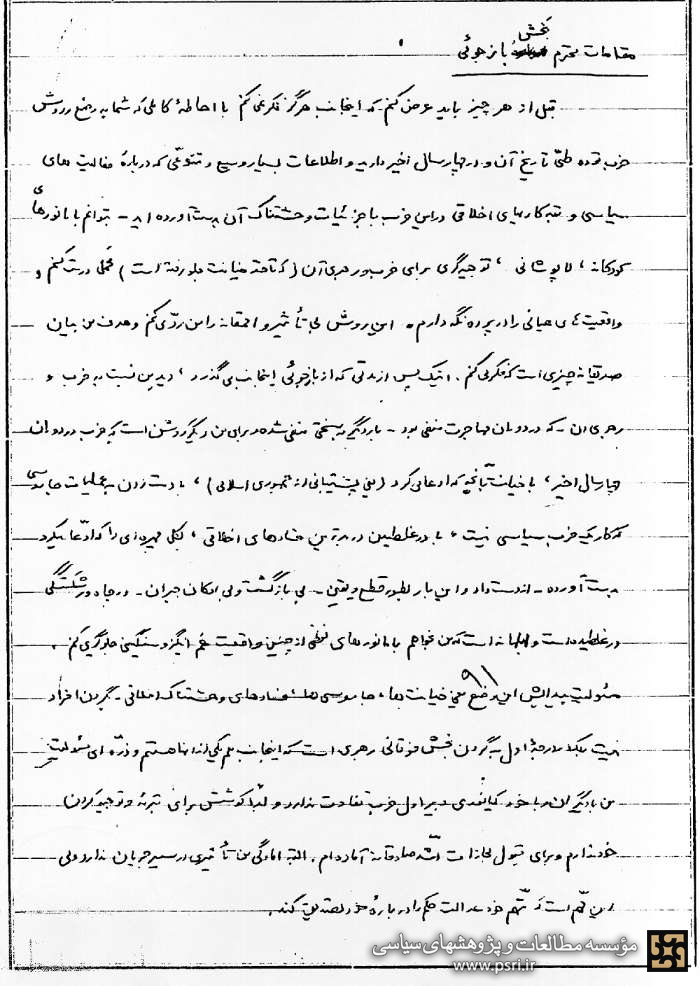 بخش
مقامات محترم بازجوئی
قبل از هر چیز باید عرض کنم که اینجانب هرگز فکر نمی کنم با احاطهٔ کاملی که شما به وضع و روش
حزب توده طیّ تاریخ آن و در چهار سال اخیر دارید و اطلاعات بسیار وسیع و متنوّعی که دربارهٔ فعالیت های
سیاسی و تبه کاریهای اخلاقی در این حزب با جزئیات وحشتناک آن بدست آورده اید - بتوانم با مانورهای
کودکانه ، لاپوشانی ، توجیه گری برای حزب و رهبری آن ( که تا حدّ خیانت جلو رفته است ) محملی درست کنم و
واقعیت های عیانی را در پرده نگه دارم . این روش بی تأثیر و احمقانه را من ردّ می کنم و هدف من بیان
صادقانه چیزی است که فکر می کنم . اینک پس از مدتی که از بازجوئی اینجانب می گذرد ، دید من نسبت به حزب و
رهبری آن - که در دوران مهاجرت منفی بود - بار دیگر به سختی منفی شده و برای من دیگر روشن است که حزب در دوران
چهار سال اخیر ، با خیانت بآنچه که ادعا می کرد ( یعنی پشتیبانی از جمهوری اسلامی ) ، با دست زدن به عملیات جاسوسی
که کار یک حزب سیاسی نیست ، با درغلطیدن در بدترین فسادهای اخلاقی ، بکلی چهره ای را که ادّعا میکرد
بدست آورده - از دست داد و این بار بطور قطع و یقین - بی بازگشت و بی امکان جبران - در چاه ورشکستگی
درغلطیده است و ابلهانه است که من بخواهم با مانورهای لفظی از چنین واقعیت غم انگیز و سنگینی جلوگیری کنم .
مسئولیت پیدایش این وضع یعنی خیانت ها ، جاسوسی ها و فسادهای وحشتناک اخلاقی - بگردن افراد
نیست بلکه در درجهٔ اول به گردن بخش فوقانی رهبری است که اینجانب هم یکی از آنها هستم و ذرّه ای مسئولیت
من با دیگران و با خود کیانوری دبیر اول حزب تفاوت ندارد و لذا کوششی برای تبرئه و توجیه گران
خود ندارم و برای قبول مجازات اشدّ صادقانه آماده ام . البته آمادگی من تأثیری در سیر جریان ندارد ولی
این مهم است که متّهم خود عدالت حکم را دربارهٔ خود تصدیق کند .
مؤسسه مطالعات و پژوهشهای سیاسی
www.psri.ir